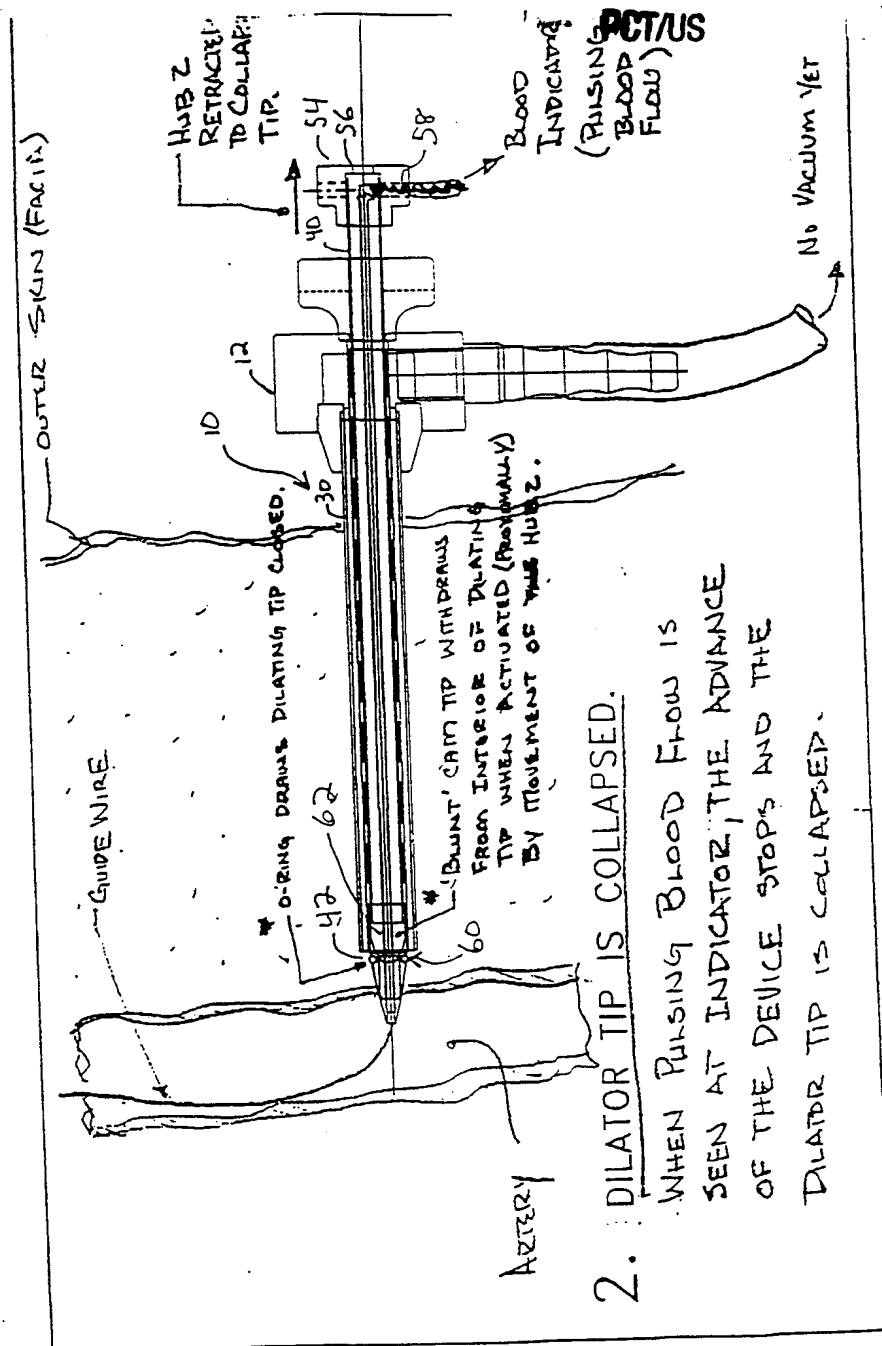 PCT/US
OUTER SKIN (FACIA)
HUB 2
RETRACTED
TO COLLAPSE
TIP.
54
56
58
BLOOD
INDICATOR
(PULSING
BLOOD
FLOW)
40
12
NO VACUUM YET
10
30
GUIDE WIRE
* O-RING DRAWS DILATING TIP CLOSED.
42
62
* 'BLUNT' CAM TIP WITHDRAWS
FROM INTERIOR OF DILATING
TIP WHEN ACTIVATED (PROXIMALLY)
BY MOVEMENT OF HUB 2.
60
ARTERY
2. DILATOR TIP IS COLLAPSED.
WHEN PULSING BLOOD FLOW IS
SEEN AT INDICATOR, THE ADVANCE
OF THE DEVICE STOPS AND THE
DILATOR TIP IS COLLAPSED.